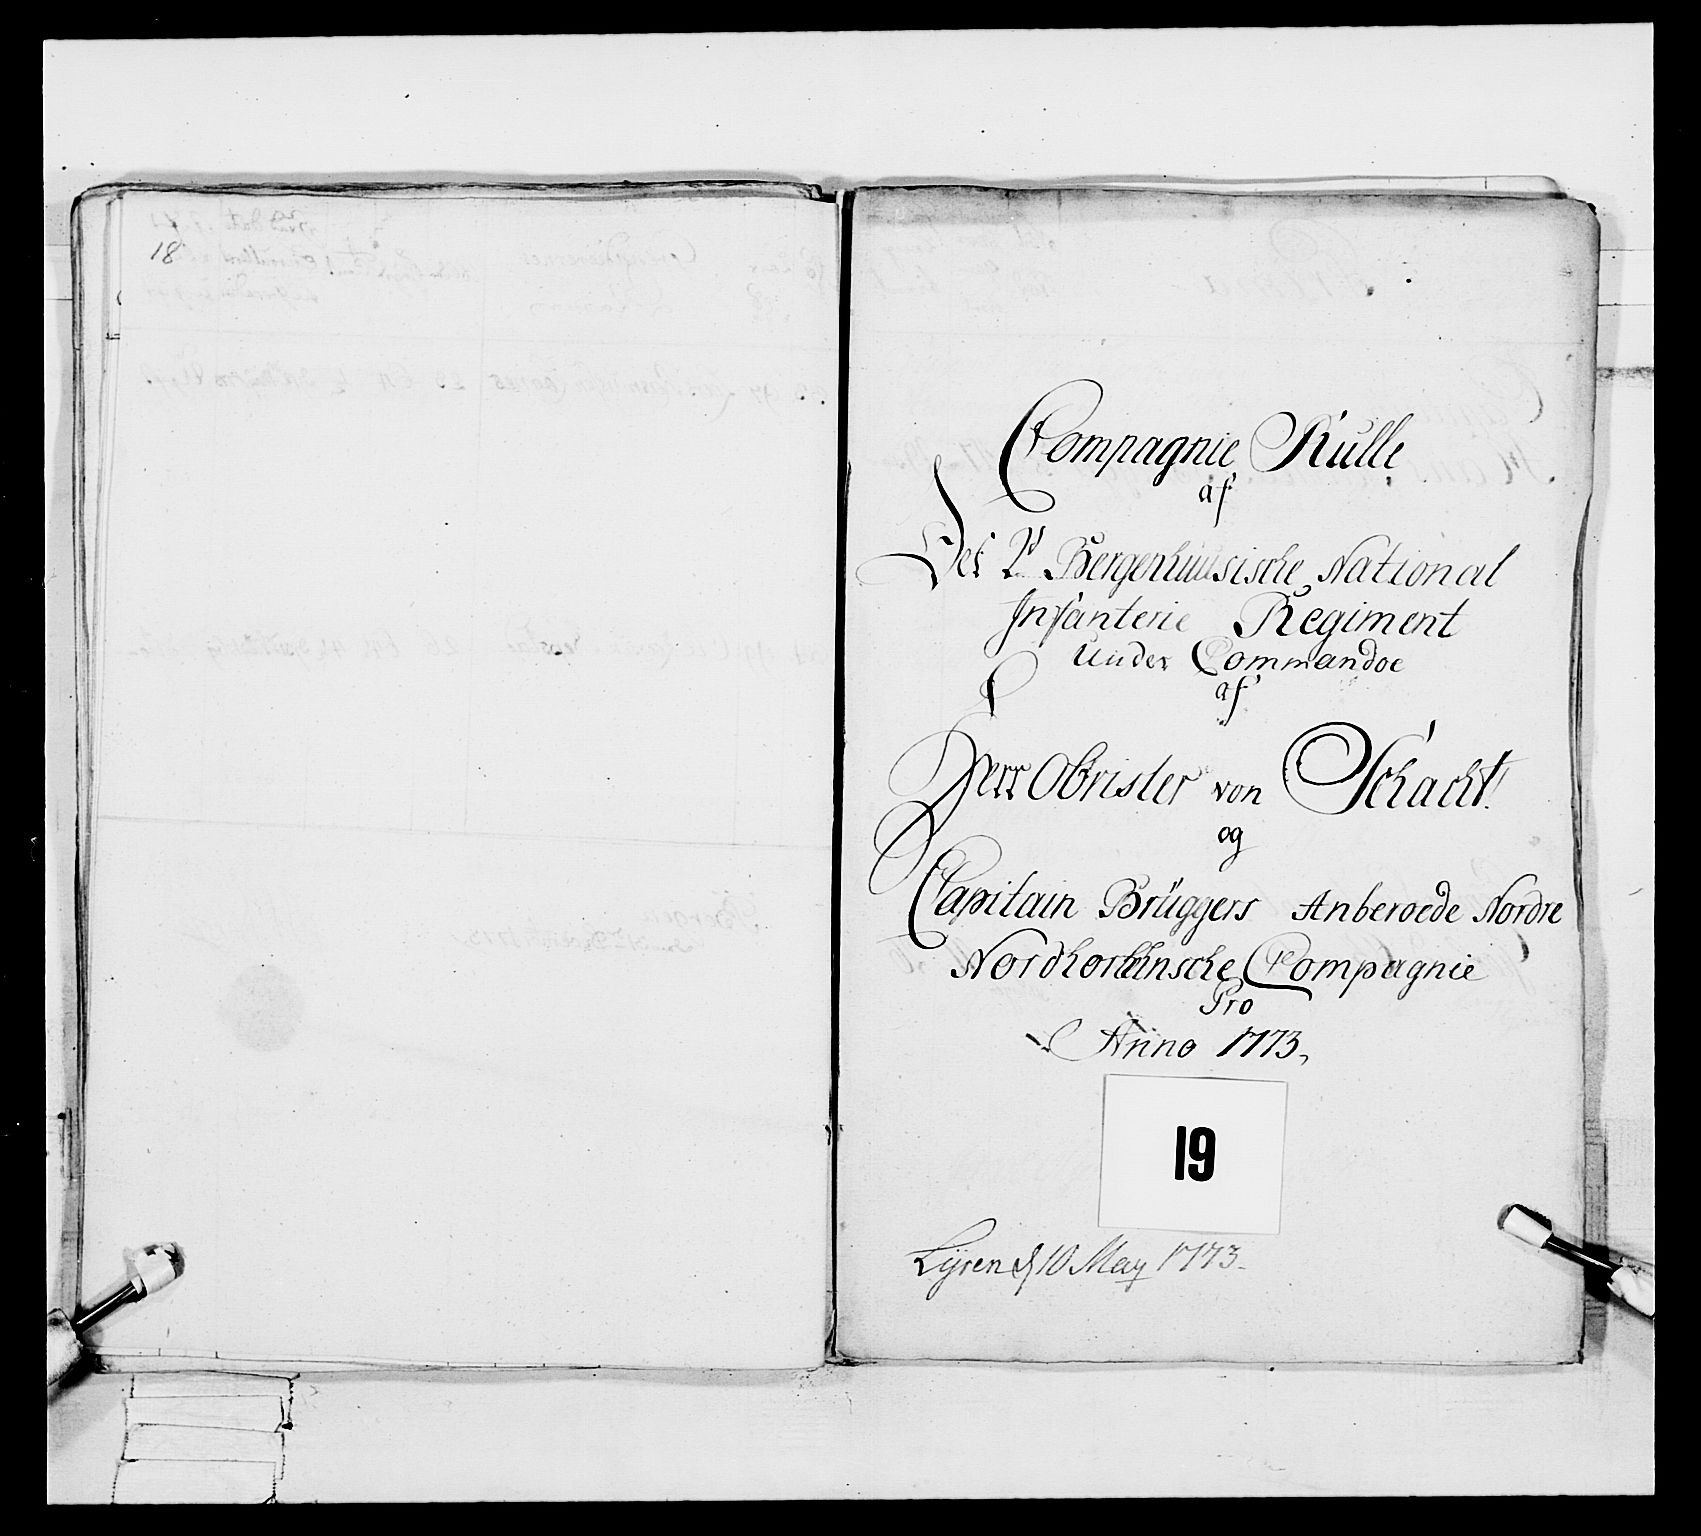 18
Compagnie Rulle
af
Det 2d Bergenhuusische National
Infanterie Regiment
Under Commandoe
af
Herr Obrister von Schacht
og
Capitain Brüggers Anberoede Nordre
Nordhorlehnsche Compagnie
Pro
Anno 1773,
19
Lyren d 10 May 1773